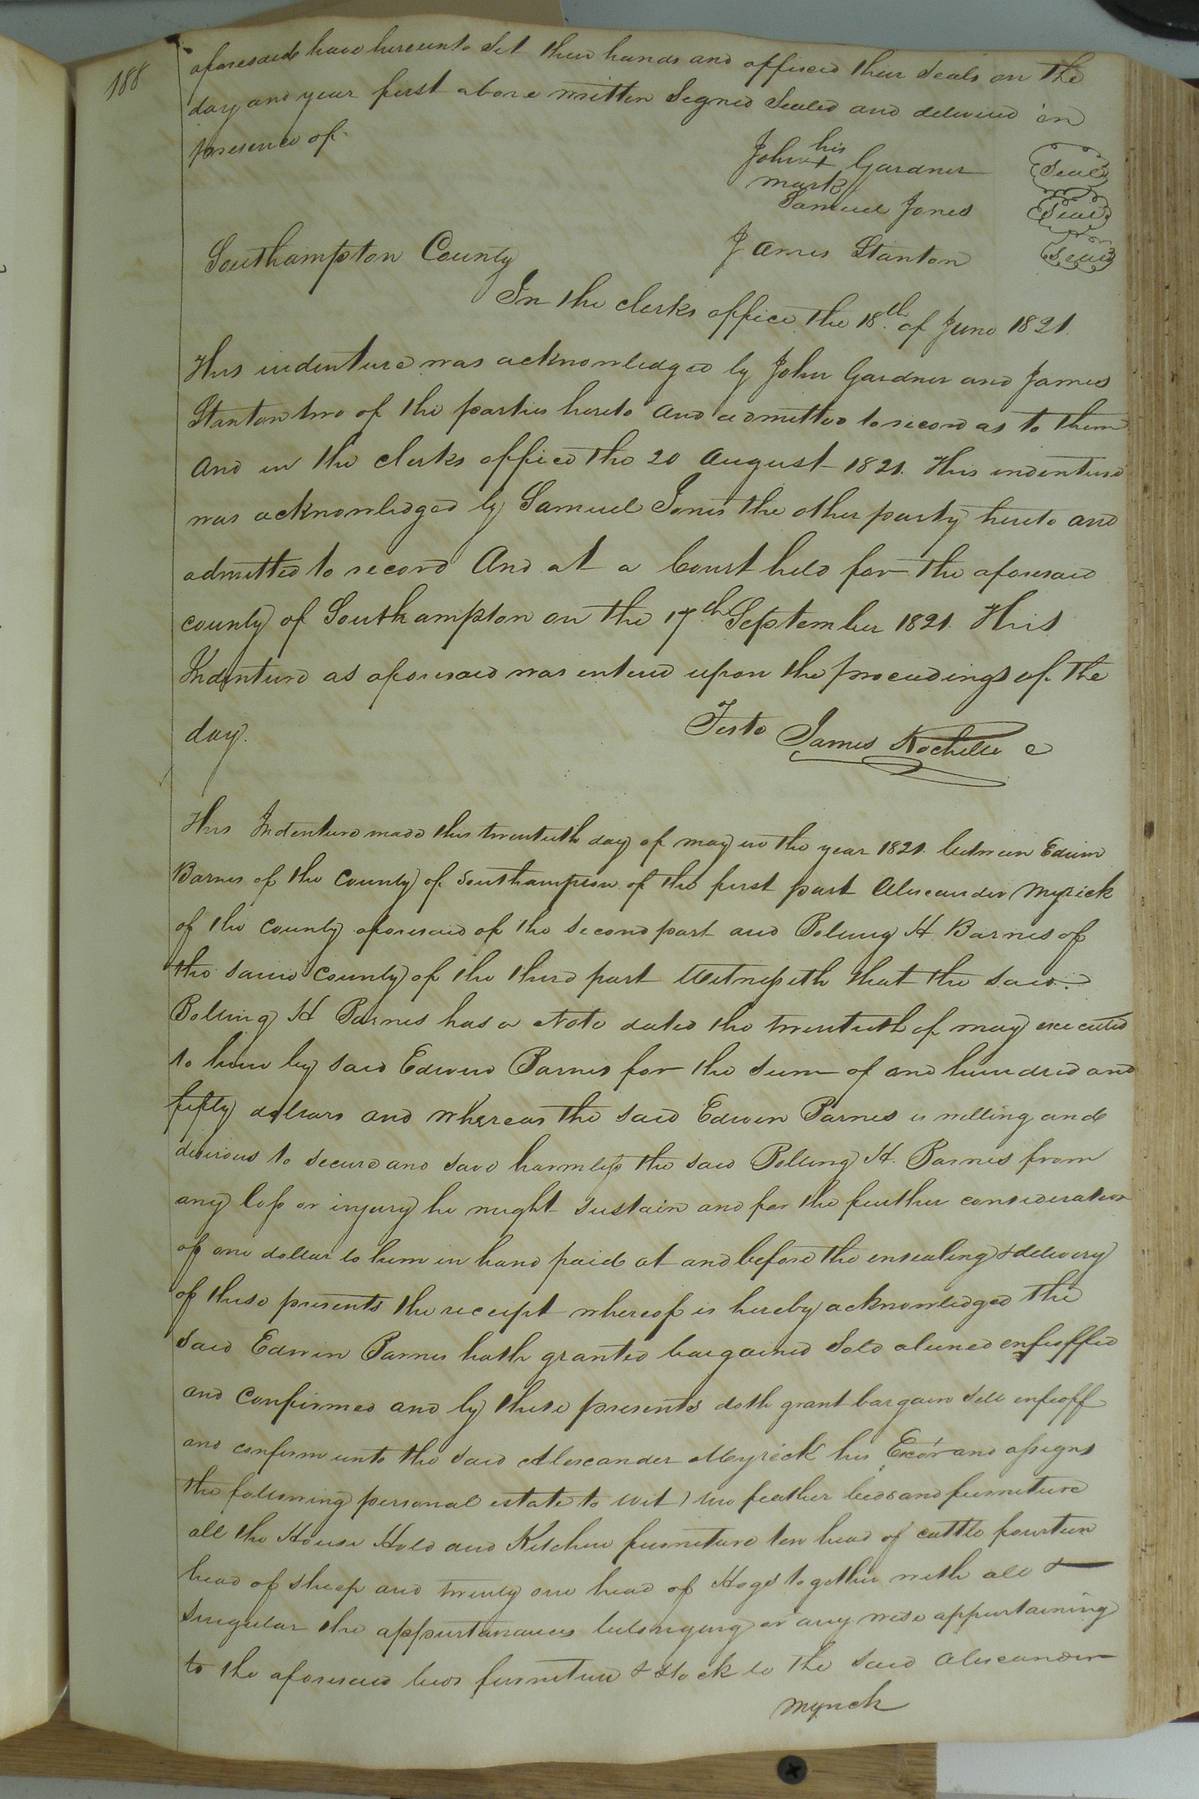 188
aforesaid have hereunto Set their hands and affixed their Seals on the
day and year first above written Signed Sealed and delivered in
presence of
John his + mark Gardner Seal
Samuel Jones Seal
James Stanton Seal
Southampton County
In the clerks office the 18th of June 1821
This indenture was acknowledged by John Gardner and James
Stanton two of the parties hereto and admitted to record as to them
And in the clerks office the 20 August 1821. This indenture
was acknowledged by Samuel Jones the other party hereto and
admitted to record And at a Court held for the aforesaid
county of Southampton on the 17th September 1821. This
Indenture as aforesaid was entered upon the proceedings of the
day.
Teste James Rochelle C
This Indenture made this twentieth day of may in the year 1821 between Edwin
Barnes of the County of Southampton of the first part Alexander Myrick
of the County aforesaid of the Second part and Bolling H Barnes of
the same County of the third part Witnesseth that the said
Bolling H Barnes has a Note dated the twentieth of may executed
to him by said Edwin Barnes for the Sum of one hundred and
fifty dollars and whereas the said Edwin Barnes is willing and
desirous to Secure and save harmless the said Bolling H. Barnes from
any loss or injury he might Sustain and for the further consideration
of one dollar to him in hand paid at and before the ensealing & delivery
of these presents the receipt whereof is hereby acknowledged the
said Edwin Barnes hath granted bargained Sold aliened enfeoffed
and Confirmed and by these presents doth grant bargain Sell enfeoff
and confirm unto the said Alexander Myrick his Exor and assigns
the following personal estate to wit) two feather beds and furniture
all the House Hold and Kitchen furniture ten head of cattle fourteen
head of sheep and twenty one head of Hogs together with all &
Singular the appurtanances belonging or any wise appertaining
to the aforesaid beds furniture & Stock to the said Alexander
Myrick